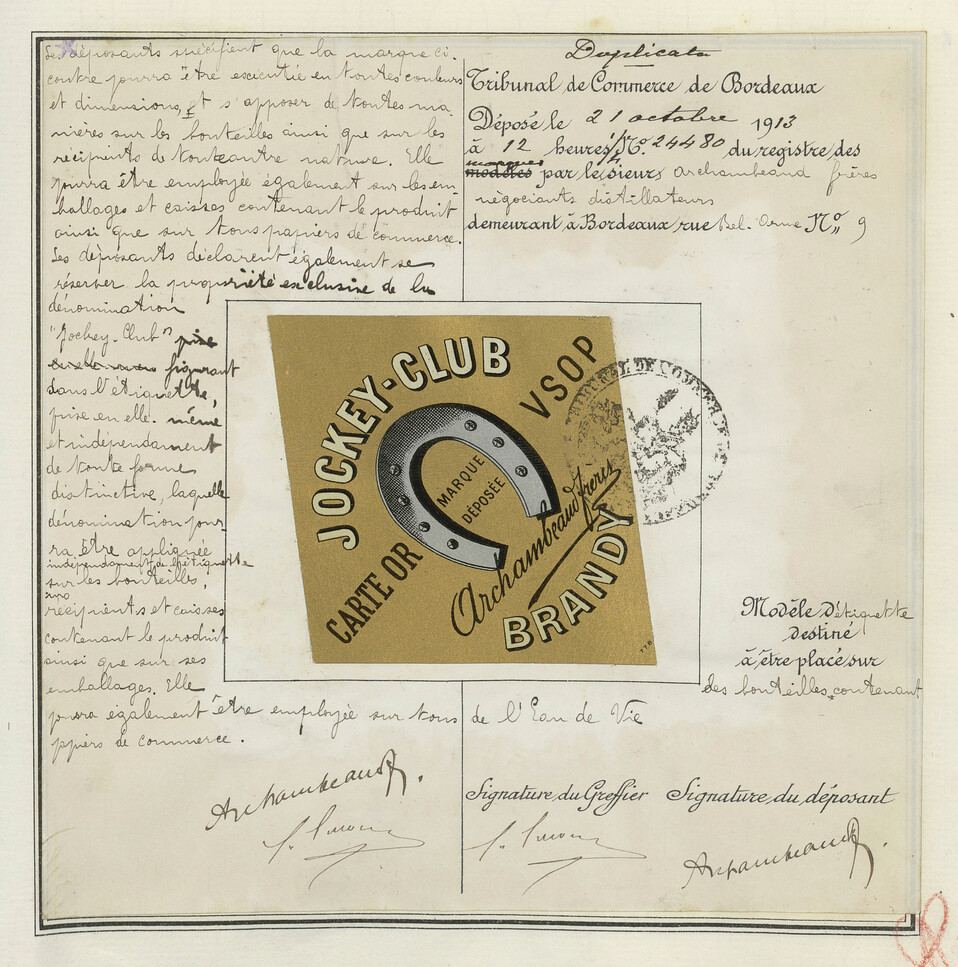 Les déposants spécifient que la marque ci-
contre pourra être exécutée en toutes couleurs
et dimensions, et s'apposer de toutes ma-
nières sur les bouteilles ainsi que sur les
récipients de toute autre nature. Elle
pourra être employée également sur les em-
ballages et caisses contenant le produit
ainsi que sur tous papiers de commerce.
Les déposants déclarent également se
réserver la propriété exclusive de la
dénomination
"Jockey-Club"
figurant
dans l'étiquette,
prise en elle-même
et indépendamment
de toute forme
distinctive, laquelle
dénomination pour-
ra être appliquée
indépendamment de l'étiquette
sur les bouteilles,
récipients et caisses
contenant le produit
ainsi que sur ses
emballages. Elle
pourra également être employée sur tous
ppiers de commerce.
Archambeaud
Duplicata
Tribunal de Commerce de Bordeaux
Déposé le 21 octobre 1913
à 12 heures No. 24480 du registre des
marques
modèles par le sieur Archambeaud frères
négociants distillateurs
demeurant à Bordeaux rue Bel-Orme No. 9
JOCKEY-CLUB
VSOP
MARQUE
DÉPOSÉE
CARTE OR
Archambeaud frères
BRANDY
TRIBUNAL DE COMMERCE DE
Modèle d'étiquette
destiné
à être placé sur
des bouteilles contenant
de l'Eau de Vie
Signature du Greffier
Signature du déposant
Archambeaud